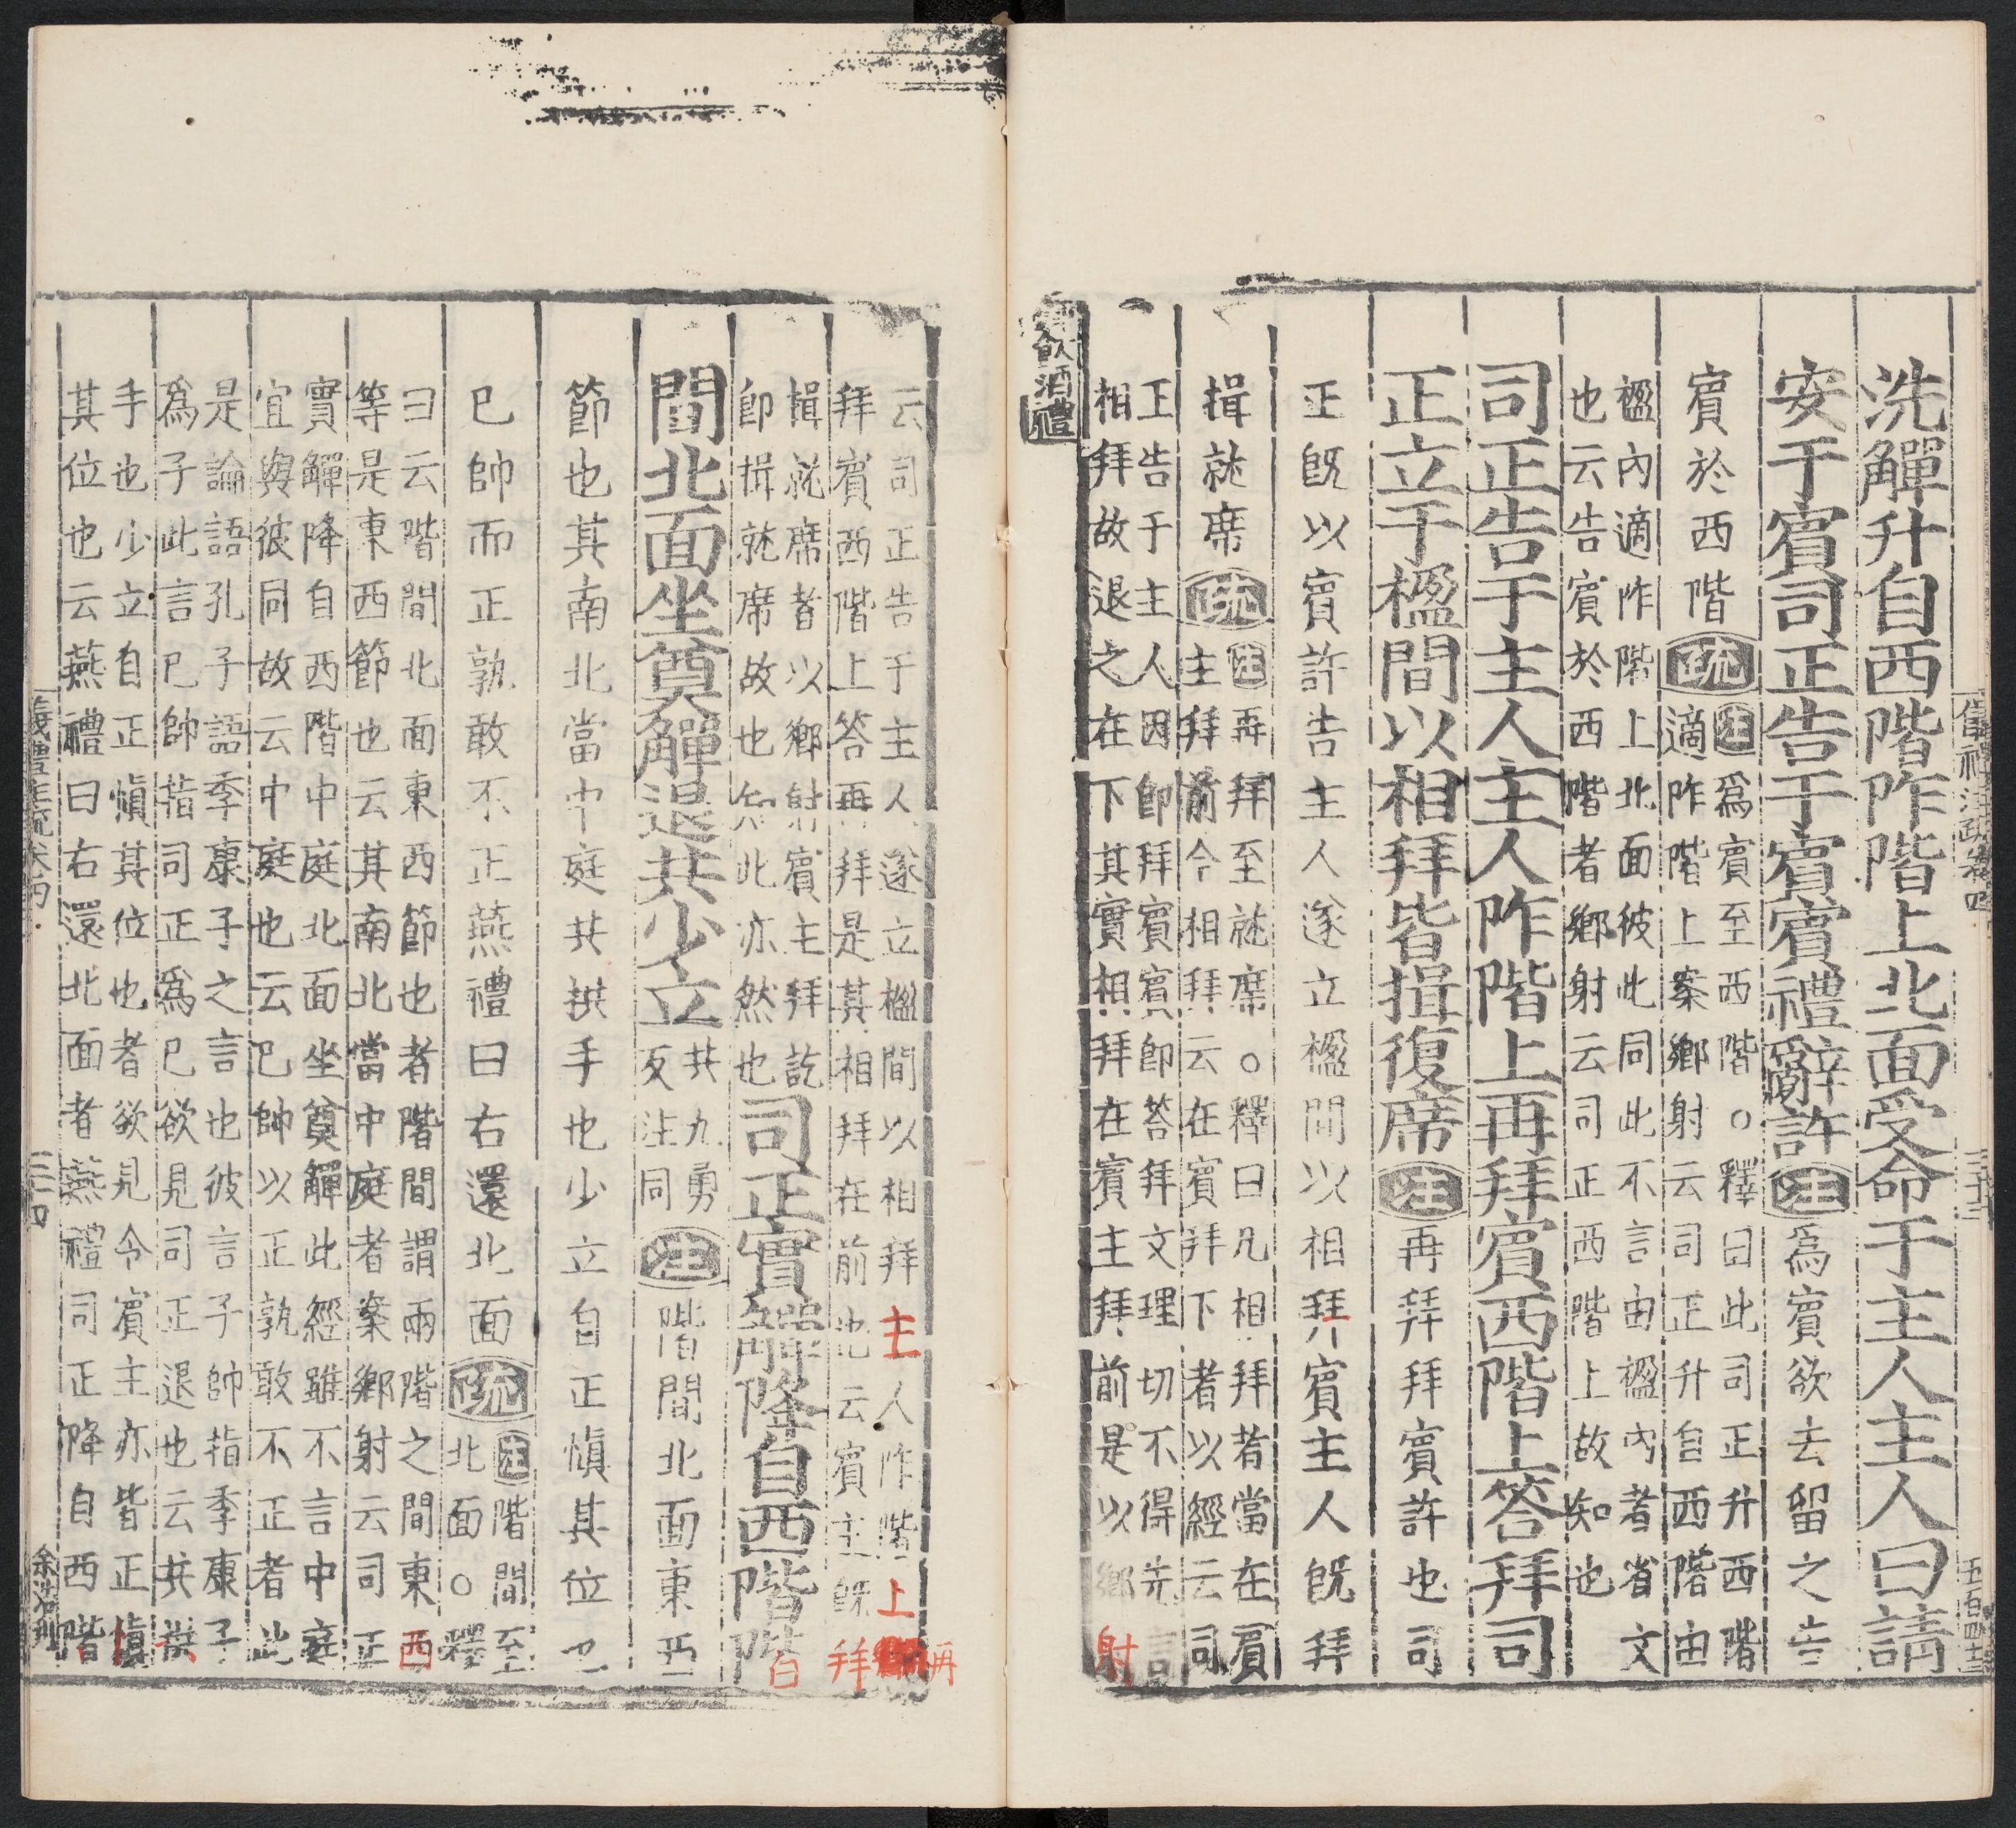 洗觶升自西階阼階上北面受命于主人主人曰請
安于賓司正告于賓賓禮辭許
注
爲賓欲去留之告
賓於西階
疏
注爲賓至西階○釋曰此司正升西階
適阼階上案鄉射云司正升自西階由
楹內適阼階上北面彼此同此不言由楹內者省文
也云告賓於西階者鄉射云司正西階上故知也
司正告于主人主人阼階上再拜賓西階上答拜司
正立于楹間以相拜皆揖復席
注
再拜拜賓許也司
正旣以賓許告主人遂立楹間以相拜賓主人旣拜
揖就席
疏
注再拜至就席○釋曰凡相拜者當在賓
主拜前今相拜云在賓拜下者以經云司
正告于主人因卽拜賓賓卽荅拜文理切不得先言
相拜故退之在下其實相拜在賓主拜前是以鄉射
鄉飲酒禮
云司正告于主人遂立楹間以相拜主人阼階上再
拜賓西階上答再拜是其相拜在前也云賓主旣拜
揖就席者以鄉射賓主拜訖
卽揖就席故也知此亦然也
司正實觶降自西階階
間北面坐奠觶退共少立
共九勇
反注同
注
階間北面東西
節也其南北當中庭共拱手也少立自正愼其位也
巳帥而正孰敢不正燕禮曰右還北面
疏
注階間至
北面○釋
曰云階間北面東西節也者階間謂兩階之間東西
等是東西節也云其南北當中庭者案鄉射云司正
實觶降自西階中庭北面坐奠觶此經雖不言中庭
宜與彼同故云中庭也云巳帥以正孰敢不正者此
是論語孔子語季康子之言也彼言子帥指季康子
爲子此言巳帥指司正爲巳欲見司正退也云共拱
手也少立自正愼其位也者欲見令賓主亦皆正愼
其位也云燕禮曰右還北面者燕禮司正降自西階
儀禮注疏卷四
三十三
五百四十三
儀禮注疏卷四
三十四